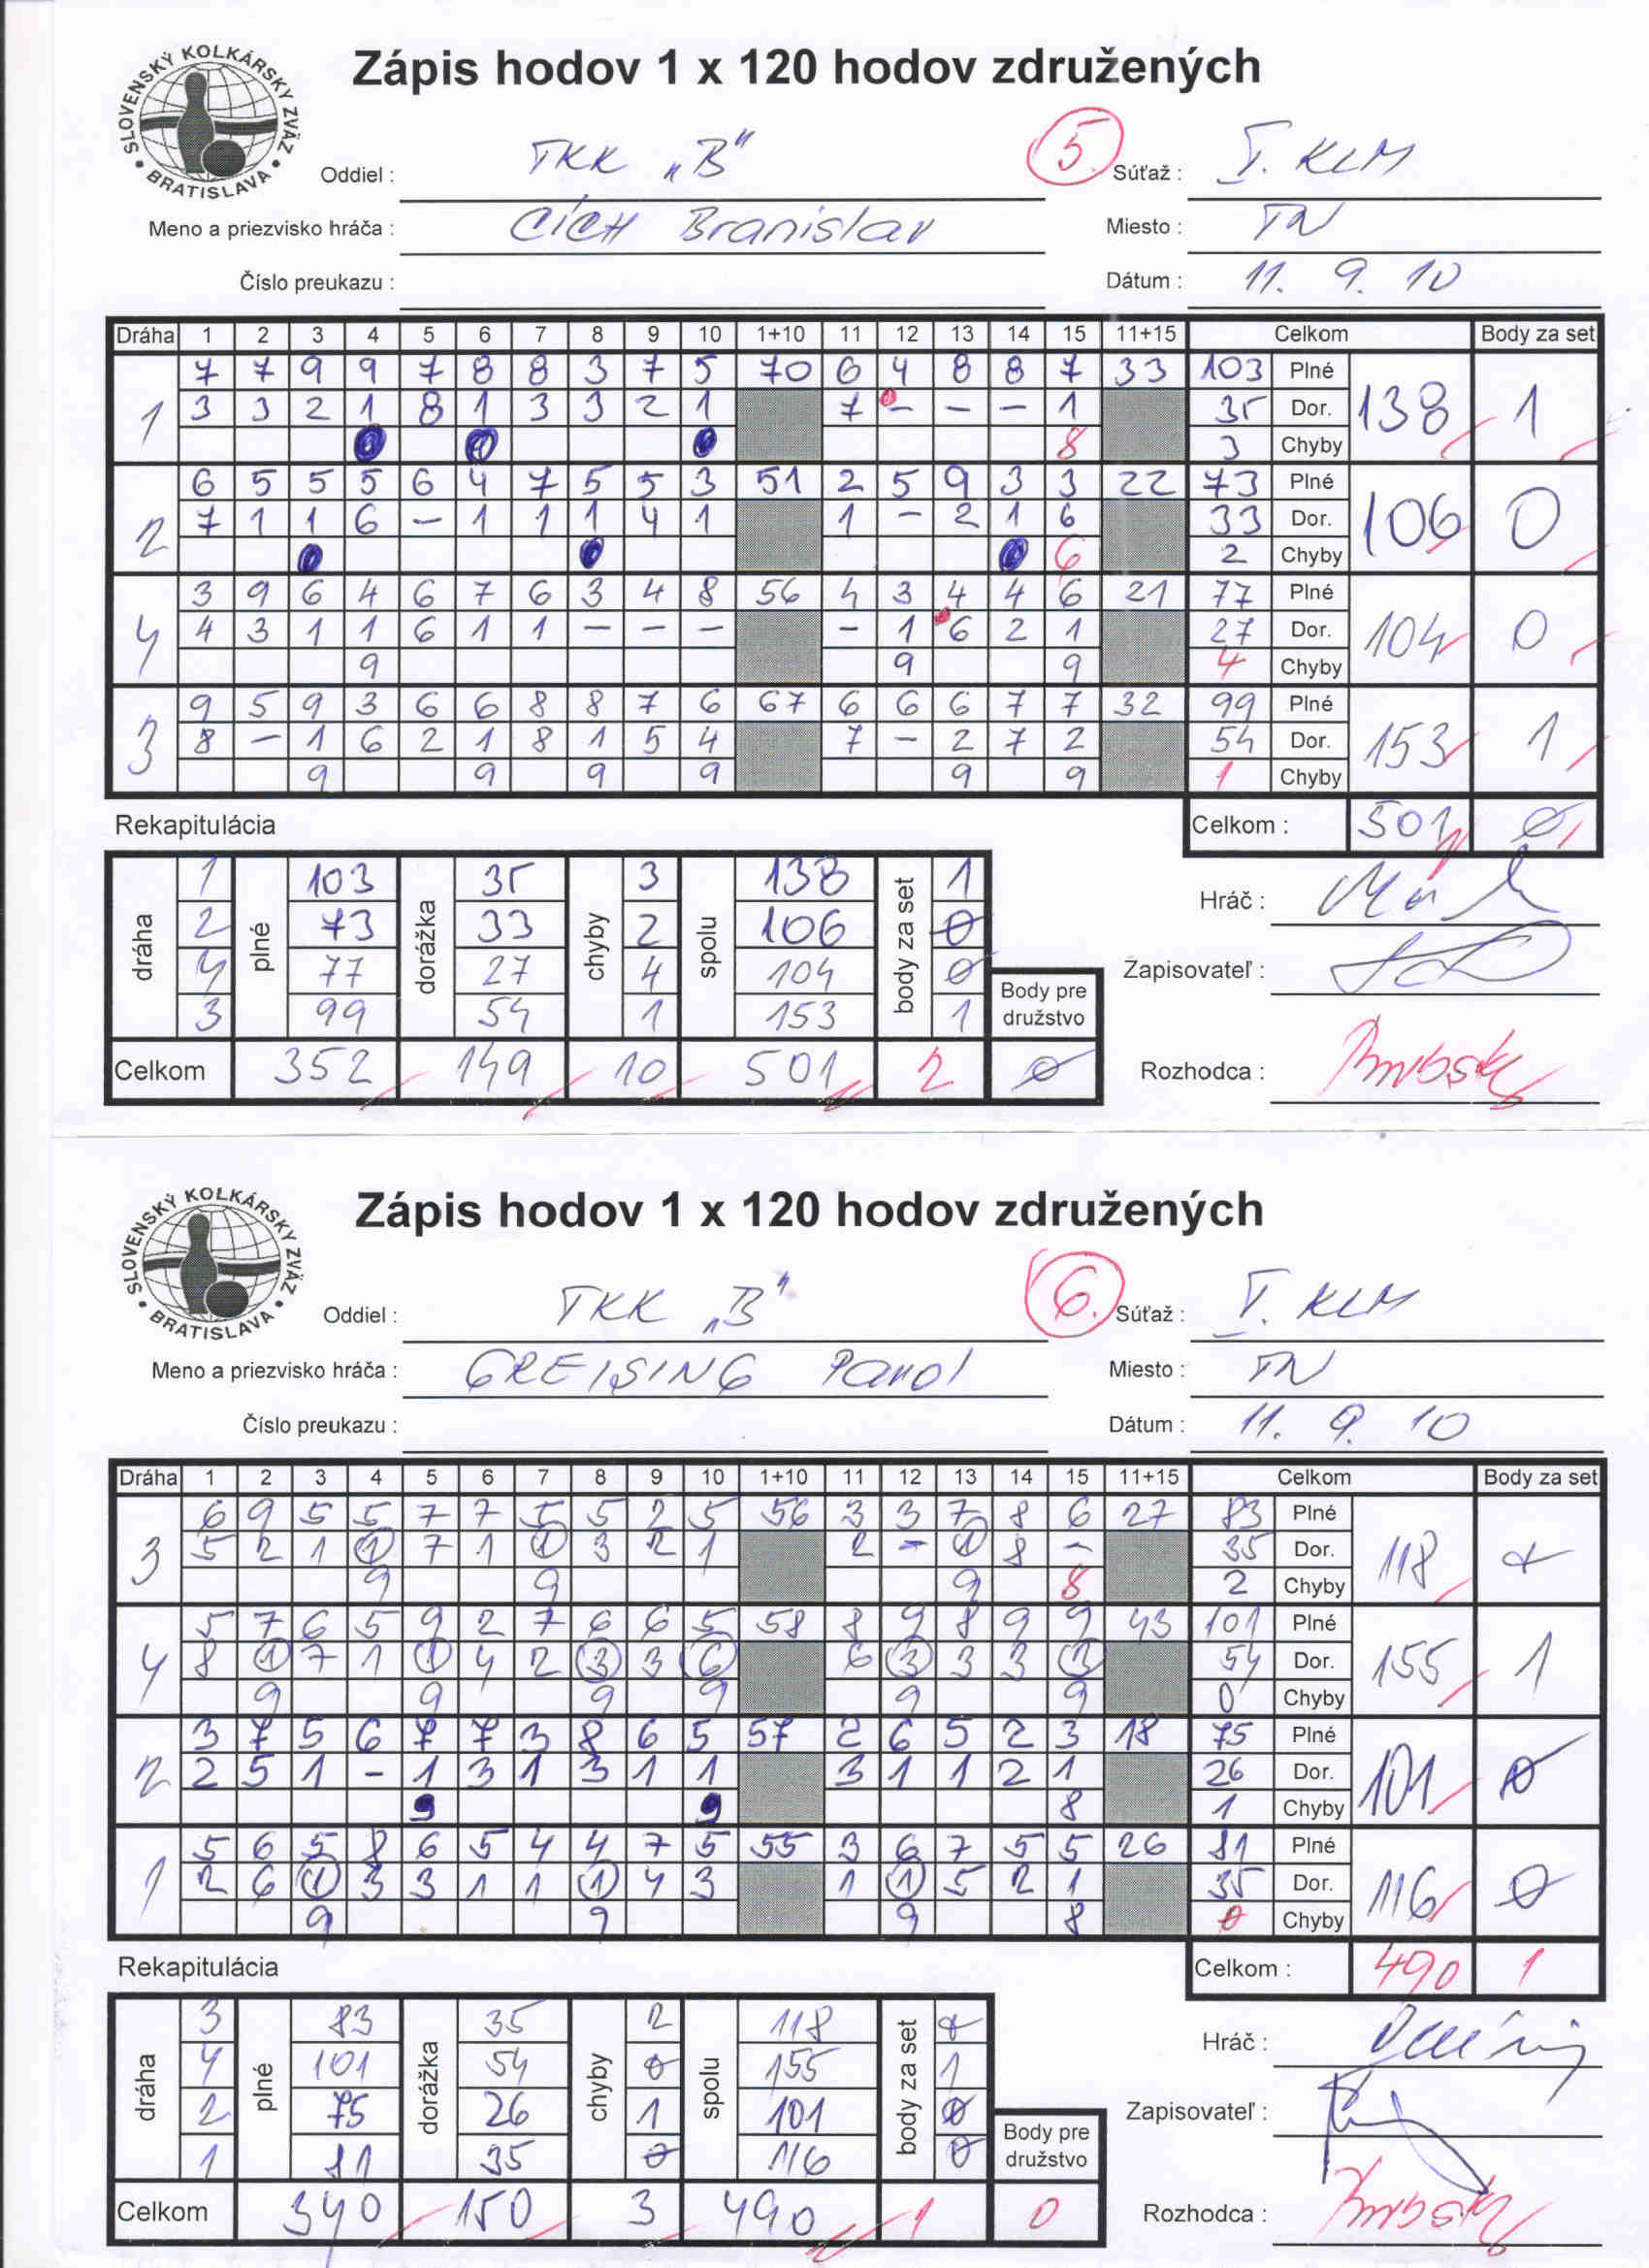 SLOVENSKÝ KOLKÁRSKY ZVÄZ • BRATISLAVA •
Zápis hodov 1 x 120 hodov združených
Oddiel : TKK „B" 5. Súťaž : I. KLM
Meno a priezvisko hráča : CÍCH Branislav Miesto : TN
Číslo preukazu : Dátum : 11. 9. 10
Dráha 1 2 3 4 5 6 7 8 9 10 1+10 11 12 13 14 15 11+15 Celkom Body za set
1 7 7 9 9 7 8 8 3 7 5 70 6 4 8 8 7 33 103 Plné 138 1
3 3 2 1 8 1 3 3 2 1 7 - - - 1 35 Dor.
8 3 Chyby
2 6 5 5 5 6 4 7 5 5 3 51 2 5 9 3 3 22 73 Plné 106 0
7 1 1 6 - 1 1 1 4 1 1 - 2 1 6 33 Dor.
6 2 Chyby
4 3 9 6 4 6 7 6 3 4 8 56 4 3 4 4 6 21 77 Plné 104 0
4 3 1 1 6 1 1 - - - - 1 6 2 1 27 Dor.
9 9 9 4 Chyby
3 9 5 9 3 6 6 8 8 7 6 67 6 6 6 7 7 32 99 Plné 153 1
8 - 1 6 2 1 8 1 5 4 7 - 2 7 2 54 Dor.
9 9 9 9 9 9 1 Chyby
Rekapitulácia Celkom : 501 0
dráha plné dorážka chyby spolu body za set
1 103 35 3 138 1
2 73 33 2 106 0
4 77 27 4 104 0
3 99 54 1 153 1
Hráč :
Zapisovateľ :
Body pre družstvo
Celkom 352 149 10 501 2 0
Rozhodca :
SLOVENSKÝ KOLKÁRSKY ZVÄZ • BRATISLAVA •
Zápis hodov 1 x 120 hodov združených
Oddiel : TKK „B" 6. Súťaž : I. KLM
Meno a priezvisko hráča : GREISING Pavol Miesto : TN
Číslo preukazu : Dátum : 11. 9. 10
Dráha 1 2 3 4 5 6 7 8 9 10 1+10 11 12 13 14 15 11+15 Celkom Body za set
3 6 9 5 5 7 7 5 5 2 5 56 3 3 7 8 6 27 83 Plné 118 0
5 2 1 1 7 1 1 3 2 1 2 - 1 8 - 35 Dor.
9 9 9 8 2 Chyby
4 5 7 6 5 9 2 7 6 6 5 58 8 9 8 9 9 43 101 Plné 155 1
8 1 7 1 1 4 2 3 3 6 6 3 3 3 3 54 Dor.
9 9 9 9 9 9 0 Chyby
2 3 7 5 6 7 7 3 8 6 5 57 2 6 5 2 3 18 75 Plné 101 0
2 5 1 - 1 3 1 3 1 1 3 1 1 2 1 26 Dor.
9 9 8 1 Chyby
1 5 6 5 8 6 5 4 4 7 5 55 3 6 7 5 5 26 81 Plné 116 0
2 6 1 3 3 1 1 1 4 3 1 1 5 2 1 35 Dor.
9 9 9 8 0 Chyby
Rekapitulácia Celkom : 490 1
dráha plné dorážka chyby spolu body za set
3 83 35 2 118 0
4 101 54 0 155 1
2 75 26 1 101 0
1 81 35 0 116 0
Hráč :
Zapisovateľ :
Body pre družstvo
Celkom 340 150 3 490 1 0
Rozhodca :